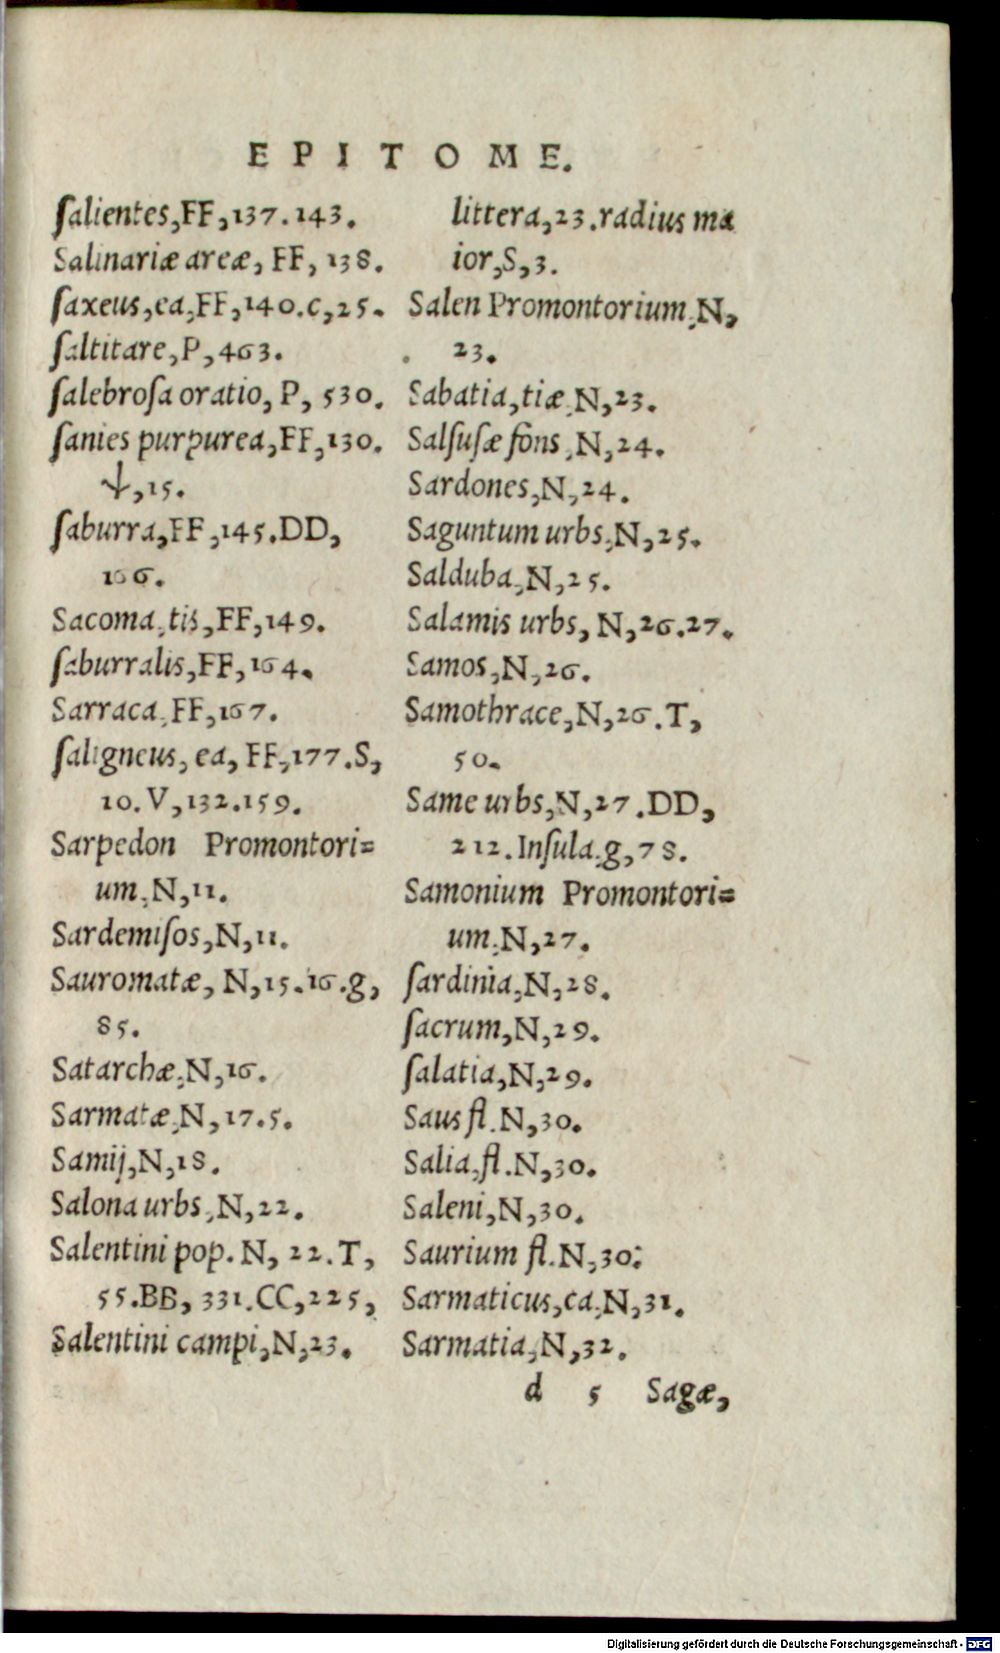 EPITOME.
ſalientes,FF,137.143.
Salinariæ areæ, FF, 138.
ſaxeus,ea,FF,140.c,25.
ſaltitare,P,463.
ſalebroſa oratio, P, 530.
ſanies purpurea,FF,130.
ψ,15.
ſaburra,FF,145.DD,
166.
Sacoma,tis,FF,149.
ſaburralis,FF,164.
Sarraca,FF,167.
ſaligneus, ea, FF,177.S,
10.V,132.159.
Sarpedon Promontori=
um,N,11.
Sardemiſos,N,11.
Sauromatæ, N,15.16.g,
85.
Satarchæ,N,16.
Sarmatæ,N,17.5.
Samij,N,18.
Salona urbs,N,22.
Salentini pop. N, 22.T,
55.BB, 331.CC,225,
Salentini campi,N,23.
littera,23.radius ma
ior,S,3.
Salen Promontorium,N,
23.
Sabatia,tiæ,N,23.
Salſuſæ fons,N,24.
Sardones,N,24.
Saguntum urbs,N,25.
Salduba,N,25.
Salamis urbs, N,26.27.
Samos,N,26.
Samothrace,N,26.T,
50.
Same urbs,N,27.DD,
212.Inſula,g,78.
Samonium Promontori=
um,N,27.
ſardinia,N,28.
ſacrum,N,29.
ſalatia,N,29.
Saus fl.N,30.
Salia,fl.N,30.
Saleni,N,30.
Saurium fl.N,30:
Sarmaticus,ca,N,31.
Sarmatia,N,32.
d 5 Sagæ,
Digitalisierung gefördert durch die Deutsche Forschungsgemeinschaft - DFG